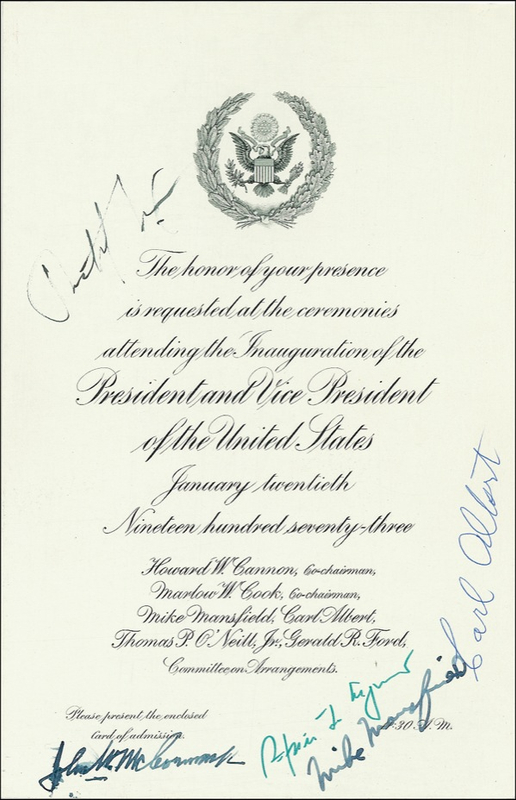 The honor of your presence
is requested at the ceremonies
attending the Inauguration of the
President and Vice President
of the United States
January twentieth
Nineteen hundred seventy-three
Howard W. Cannon, Co-chairman,
Marlow W. Cook, Co-chairman,
Mike Mansfield, Carl Albert,
Thomas P. O'Neill, Jr., Gerald R. Ford,
Committee on Arrangements.
Carl Albert
Please present the enclosed
Card of admission.
:30 A.M.
Mike Mansfield
John W. McCormack